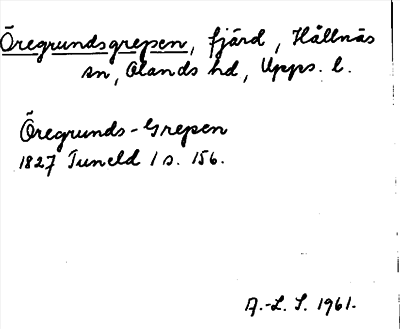 Öregrundsgrepen, fjärd, Hållnäs
sn, Olands hd, Upps. l.
Öregrunds-Grepen
1827 Tuneld 1 s. 156.
A.-L. S. 1961.